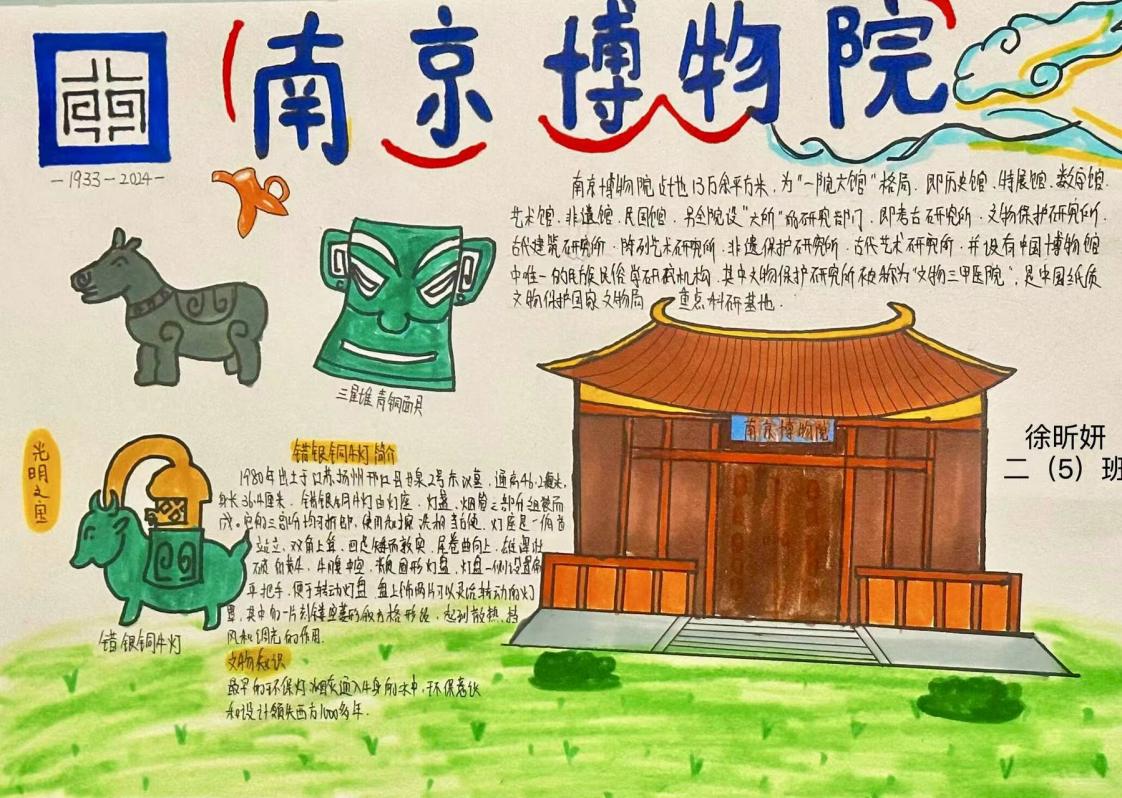 南京博物院
-1933-2024-
南京博物院占地13万余平方米，为“一院六馆”格局，即历史馆、特展馆、数字馆、
艺术馆、非遗馆、民国馆。另全院设“六所”研究部门，即考古研究所、文物保护研究所、
古代建筑研究所、陈列艺术研究所、非遗保护研究所、古代艺术研究所，并设有中国博物馆
中唯一的民族民俗学研究机构。其中文物保护研究所被称为“文物三甲医院”，是中国纸质
文物保护国家文物局 重点科研基地。
三星堆青铜面具
南京博物院
徐昕妍
二（5）班
光明之宝
错银铜牛灯简介
1980年出土于江苏扬州邗江县甘泉2号东汉墓，通高46.2厘米，
身长36.4厘米。错银铜牛灯由灯座、灯盏、烟管三部分组装而
成。三部分均可拆卸，使用和擦洗相当方便。灯座是一俯首
站立，双角上耸，四足矮而敦实，尾卷曲向上，雄浑壮
硕的黄牛，牛腹中空，背负圆形灯盘，灯盘一侧设置
平把手，便于转动灯盘，盘上饰两片可以灵活转动的灯
罩，其中的一片刻镂空菱的格形，起到散热、挡
风和调光的作用。
错银铜牛灯
文物知识
最早的环保灯，烟灰通入牛身的水中，环保意识
和设计领先西方1000多年。